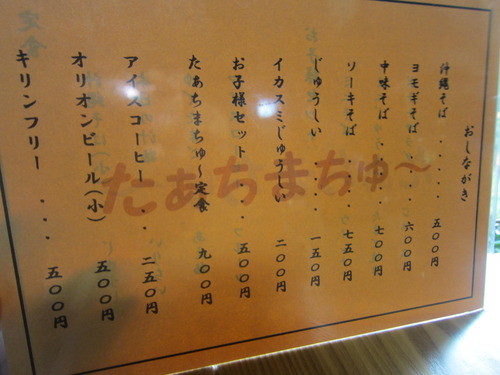 おしながき
沖縄そば ・・・・・ 五〇〇円
ヨモギそば ・・・・ 六〇〇円
中味そば ・・・・ 七〇〇円
ソーキそば ・・・・ 七五〇円
じゅうしい ・・・・ 一五〇円
イカスミじゅうしい 二〇〇円
お子様セット ・・ 五〇〇円
たあちまちゅ〜定食 九〇〇円
アイスコーヒー ・・ 二五〇円
オリオンビール(小) 五〇〇円
キリンフリー ・・・ 五〇〇円
たぁちまちゅ〜
定食